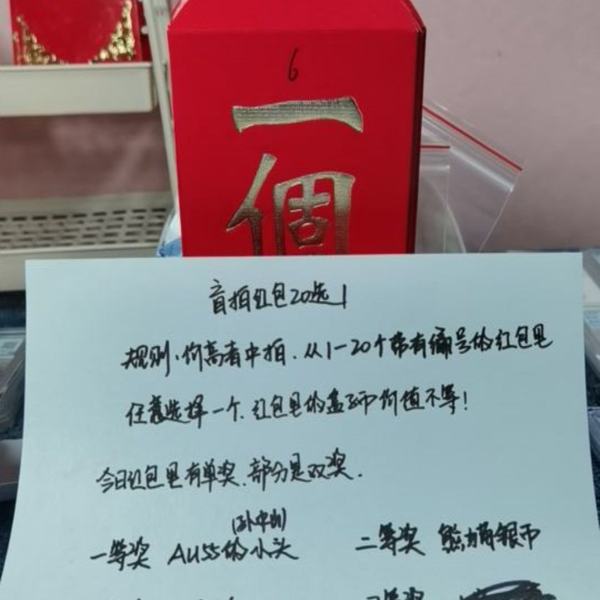 6
一
個
盲拍红包20选1
规则:价高者中拍.从1-20个带有编号的红包里
任意选择一个.红包里的盒子币价值不等!
今日红包里有单奖.部分是双奖.
一等奖 AU55的小头 二等奖 熊猫银币